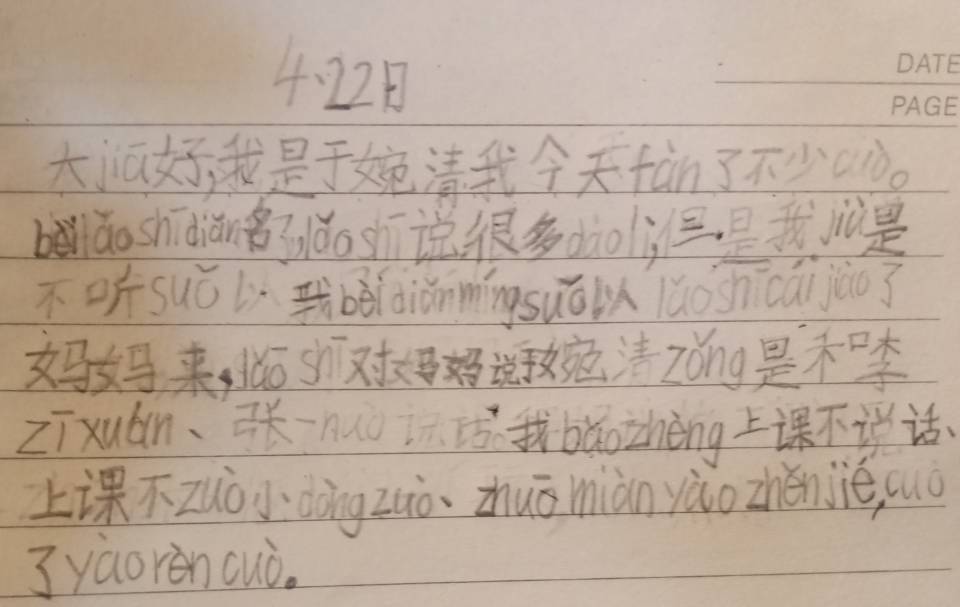 4.22日
DATE
PAGE
大jiā好,我是于婉清我今天fàn了不少cuò。
bèilǎoshīdiǎn名了,lǎoshī说很多dàolǐ,但是我jiù是
不听suǒ以我bèidiǎnmíngsuǒ以lǎoshīcáijiào了
妈妈来,lǎoshī对妈妈说于婉清zǒng是和李
zīxuān、张一nuò说话。我bǎozhèng上课不说话、
上课不zuò小dòngzuò、zhuōmiànyàozhěnjié,cuò
了yàorèncuò。